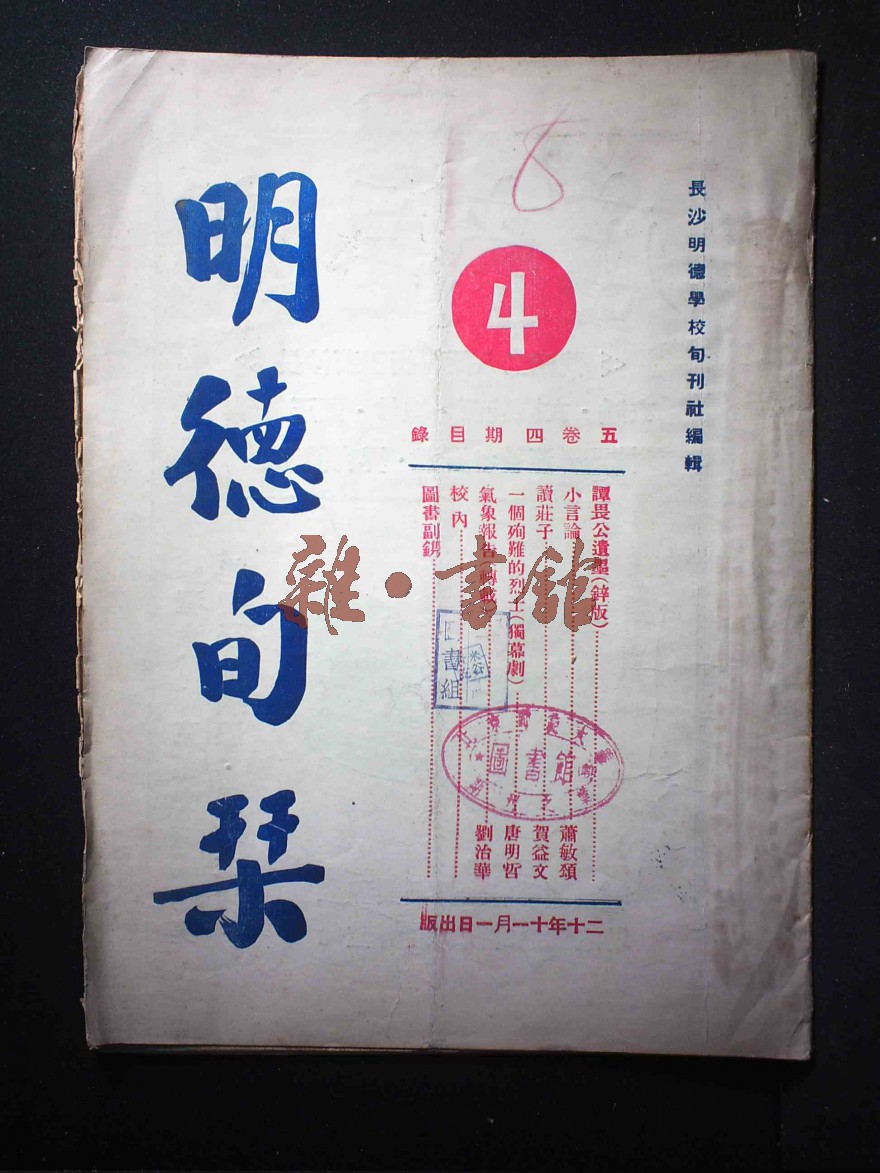 長沙明德學校旬刊社編輯
8
4
五卷四期目錄
譚畏公遺墨(鋅版)
小言論 蕭敏頌
讀莊子 賀益文
一個殉難的烈士(獨幕劇) 唐明哲
氣象報告(轉載) 劉治華
校內
圖書副鐫
二十年十一月一日出版
明德旬栞
雜·書館
書組
圖書館